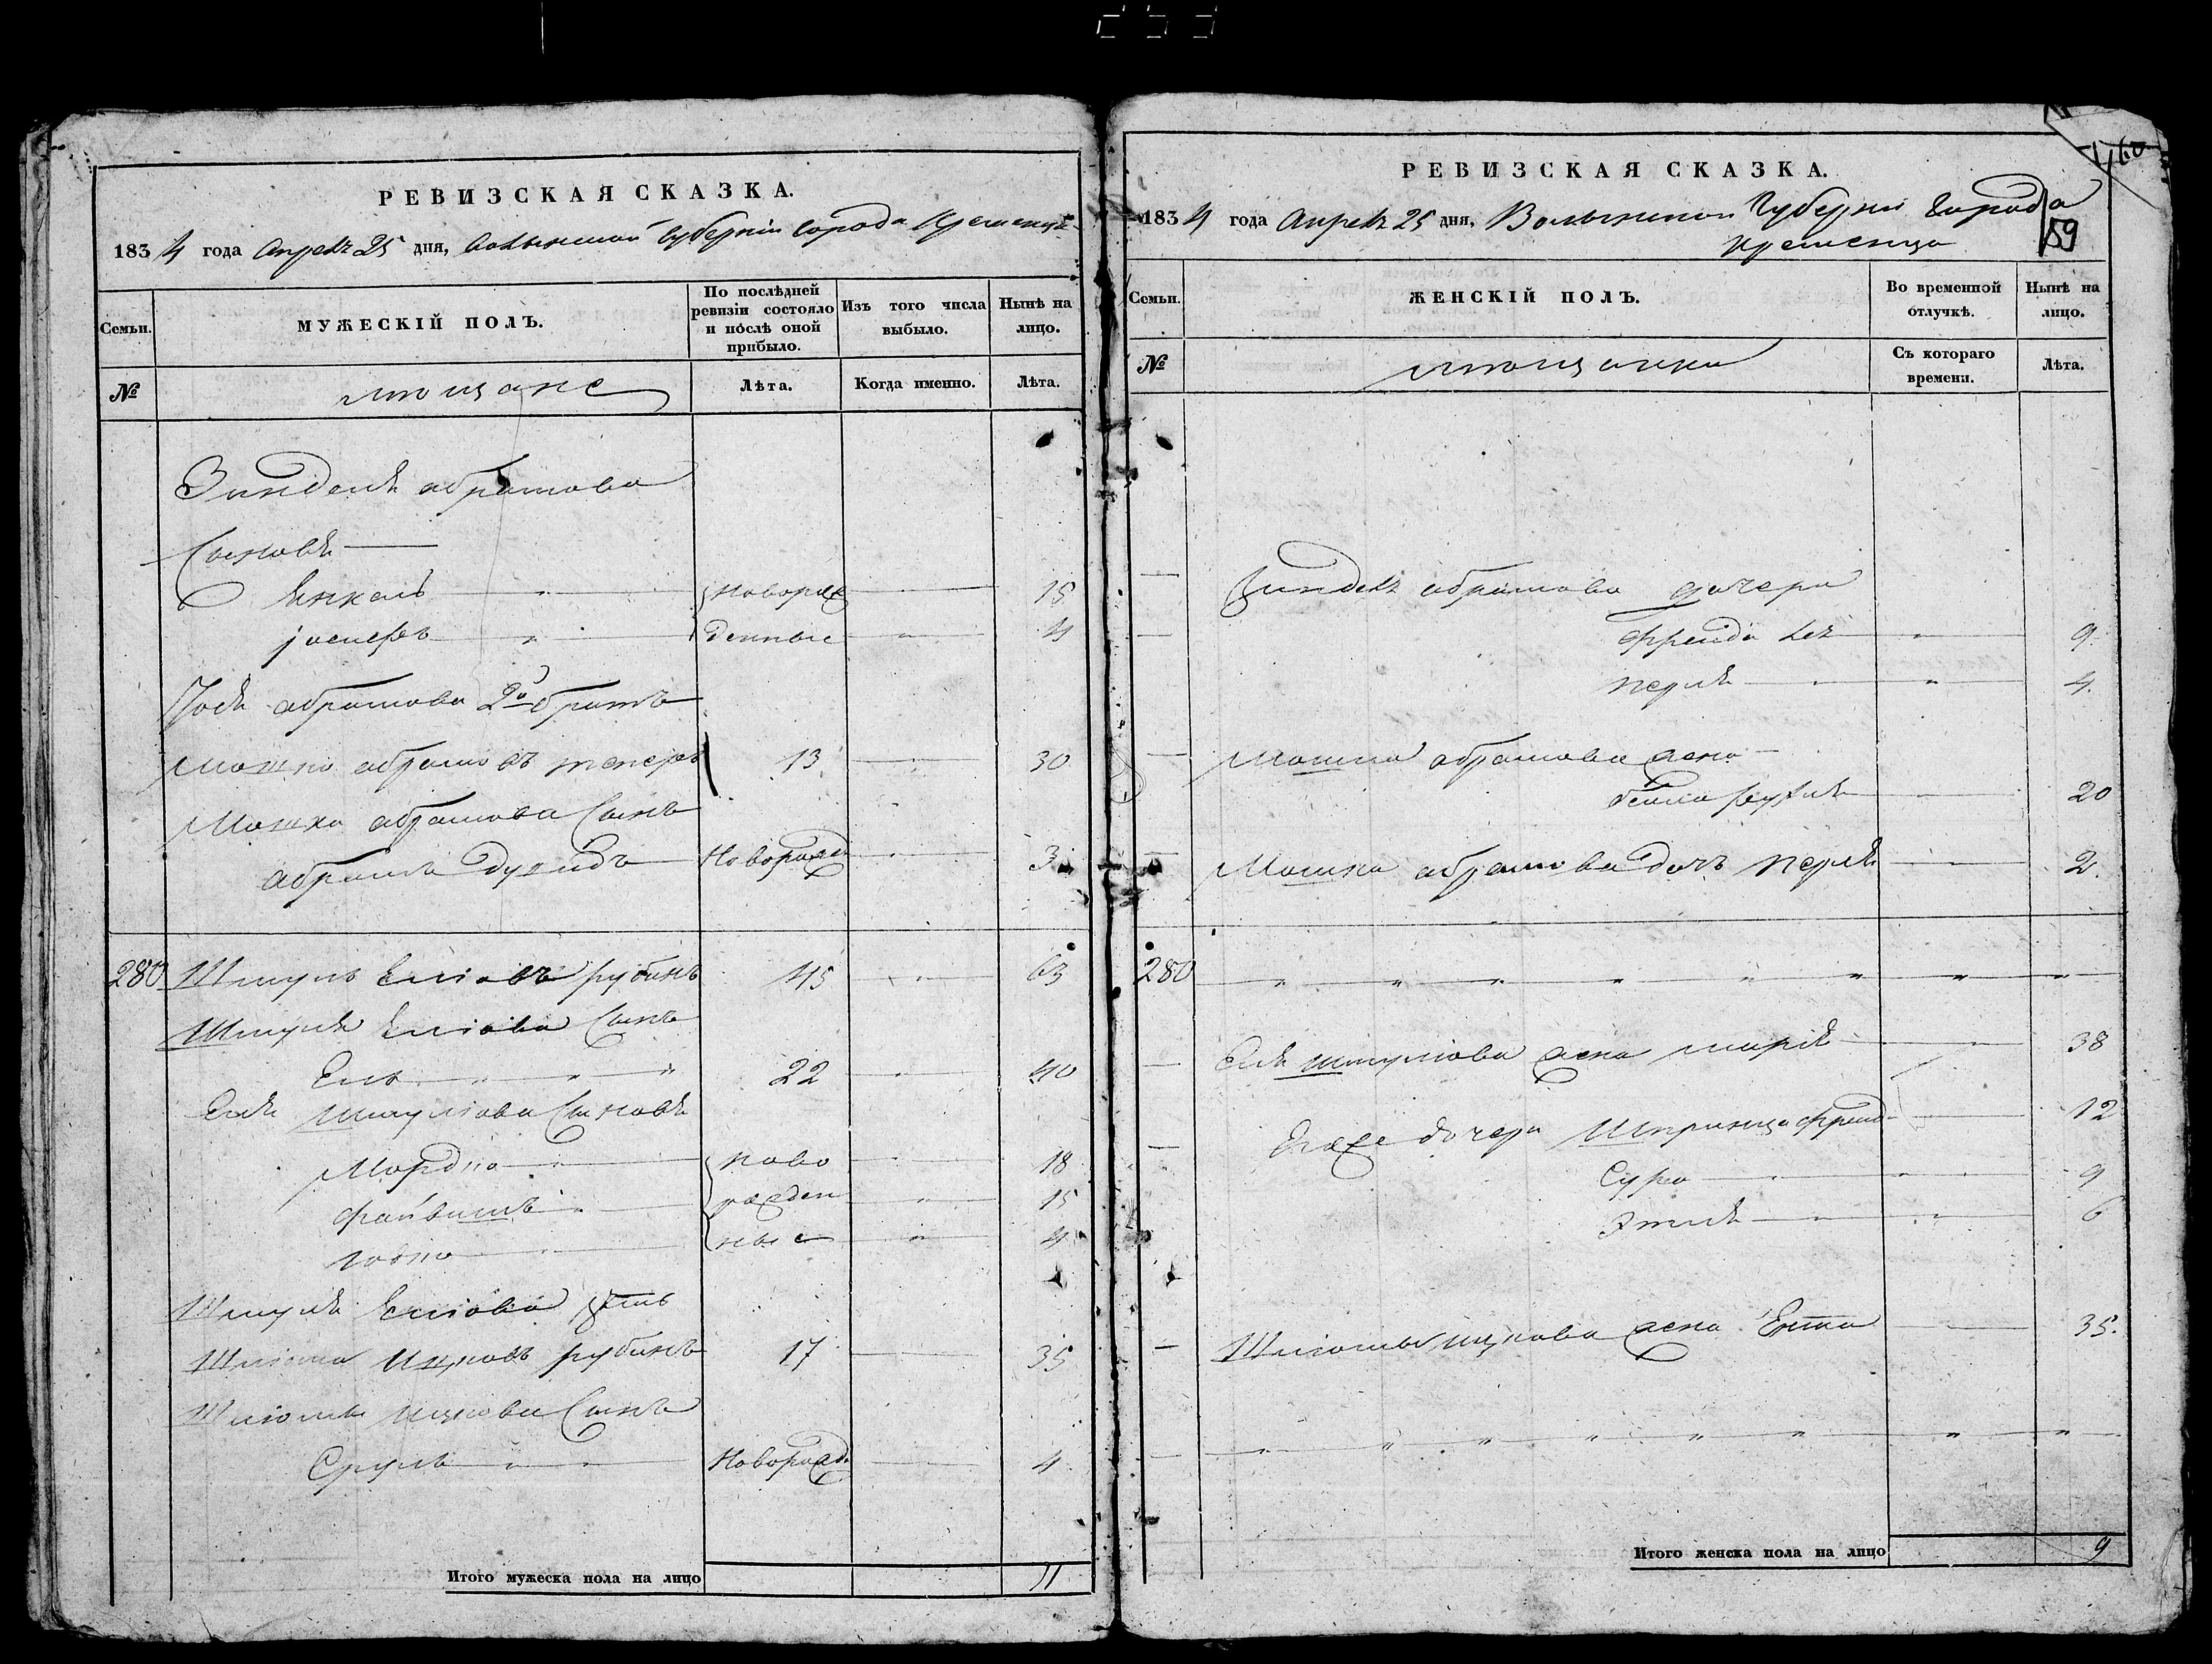 РЕВИЗСКАЯ СКАЗКА.
1834 года Апреля 25 дня, Волынской Губерніи Города Кременца
Семьи.
МУЖЕСКІЙ ПОЛЪ.
По послѣдней ревизіи состояло и послѣ оной прибыло.
Изъ того числа выбыло.
Нынѣ на лицо.
№
мещане
Лѣта.
Когда именно.
Лѣта.
Зинделя абрамова
Сыновя
Янкель новорож 18
іосифъ денные 4
абрамова 2й братъ
Мошко абрамовъ 13 30
Мошка абрамова Сынъ
абрамъ Новорожд 3
280 Шмуль Еліовъ рубинъ 45 63
Шмуля Еліова Сынъ
Ель 22 40
Еля Шмуліова Сыновя
Мордко ново 18
файвишъ рожден 15
ные 4
Шмуля Еліова зять
Шліома Ицковъ рубинъ 17 35
Шліомы Ицкова Сынъ
Сруль Новорожд. 4
Итого мужеска пола на лицо 11
160
РЕВИЗСКАЯ СКАЗКА.
1834 года Апреля 25 дня, Волынской Губерніи Города
Кременца
159
Семьи.
ЖЕНСКІЙ ПОЛЪ.
Во временной отлучкѣ.
Нынѣ на лицо.
№
мещанки
Съ котораго времени.
Лѣта.
Зинделя абрамова дочери
фрейда 9.
перля 4.
Мошка абрамова жена
бейла 20
Мошка абрамова дочь перля 2.
280
Еля шмуліова жена марія 38
Егоже дочери Шпринца фрейд 12
Сура 9
Этля 6
Шліомы ицкова жена Ента 35.
Итого женска пола на лицо 9